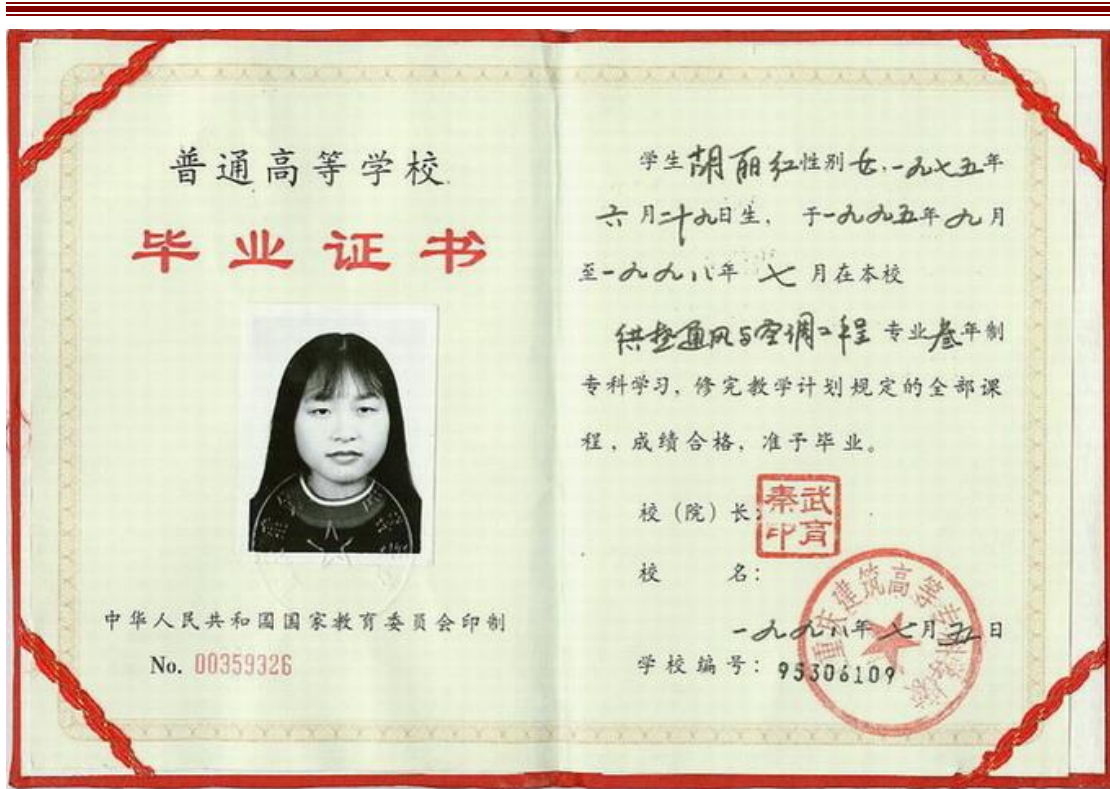 普通高等学校
毕业证书
中华人民共和国国家教育委员会印制
No. 00359326
学生胡丽红性别女,一九七五年
六月二十九日生, 于一九九五年九月
至一九九八年 七 月在本校
供热通风与空调工程 专业叁年制
专科学习, 修完教学计划规定的全部课
程, 成绩合格, 准予毕业。
校(院)长:
武育秦印
校 名:
重庆建筑高等专科学校
一九九八年七月五日
学校编号: 95306109